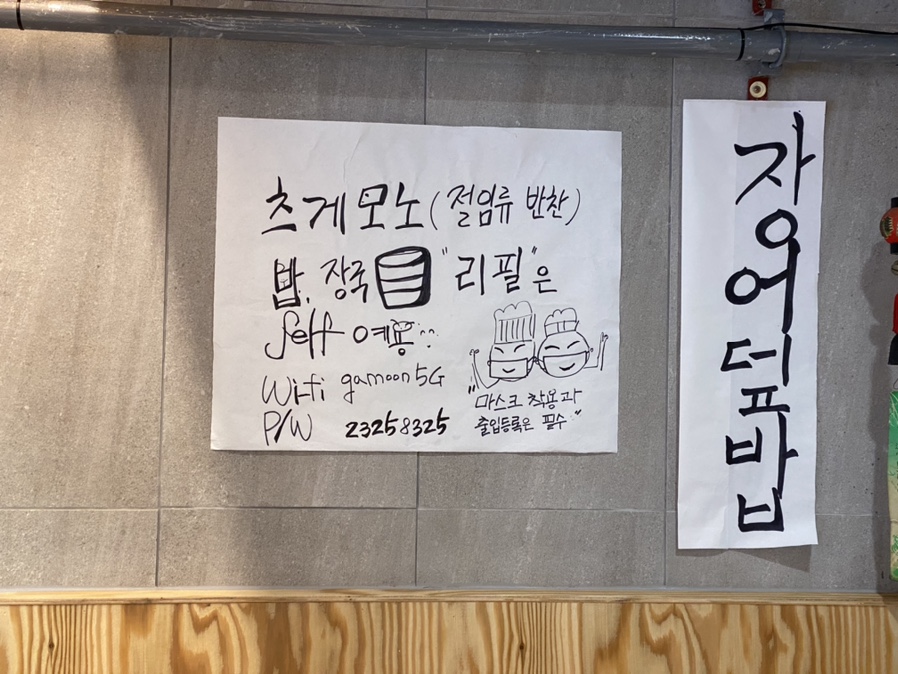 츠게모노(절임류 반찬)
밥, 장국 "리필"은
self 예용^^
Wifi gamoon5G
P/W 23258325
"마스크 착용과
출입등록은 필수"
장어덮밥